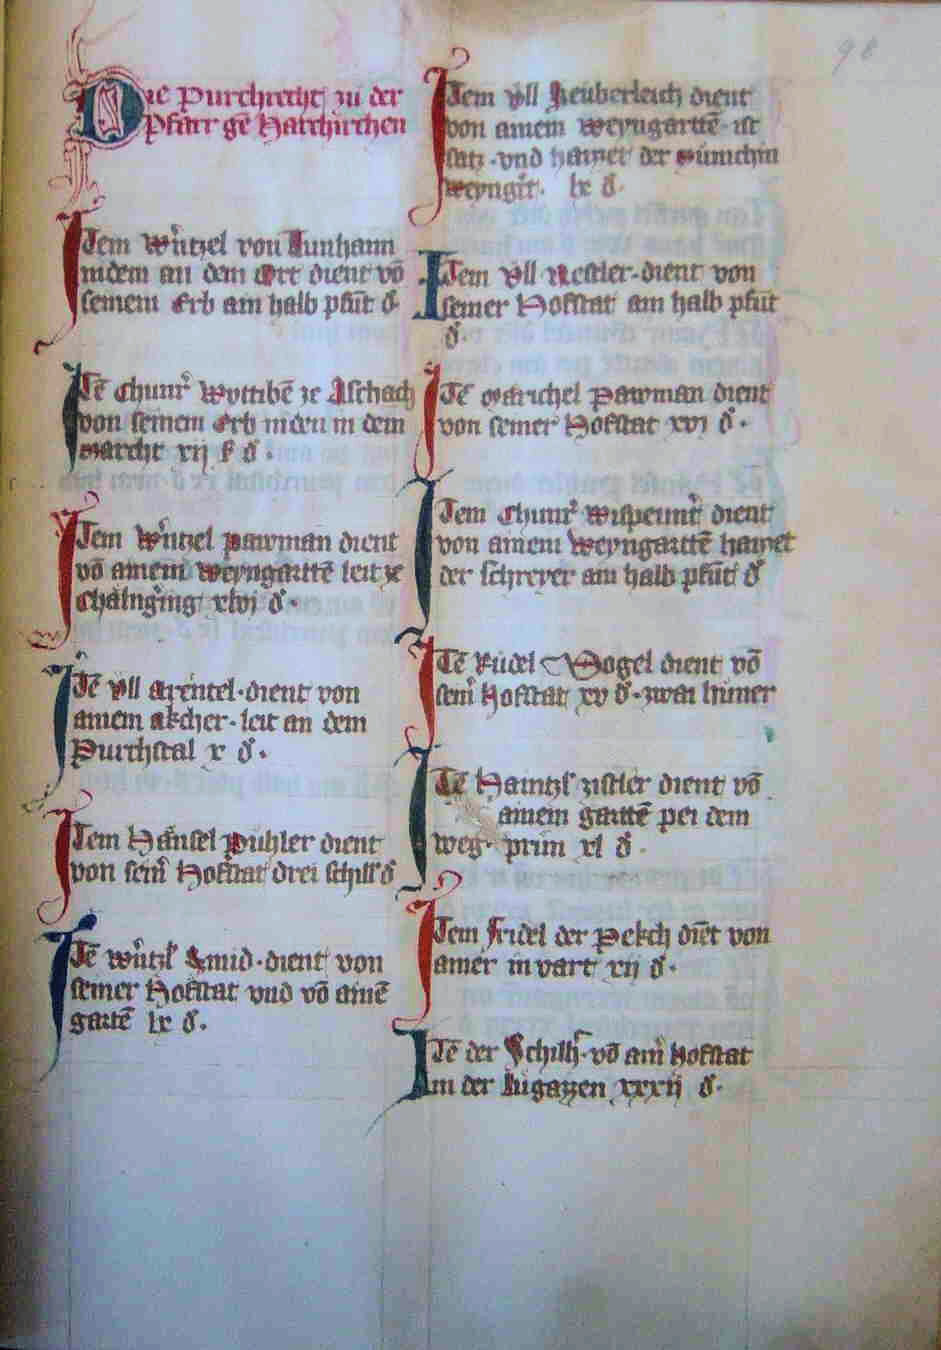 Die Purchrecht zu der
Pfarr gen̄ Hartchirchen
Item Wͤntzel von Tunhaim
niden an dem Ort dient vō
seinem Erb am halb pfūt ₰
Itē Chunr̄ Wyttibē ze Aschach
von seinem Erb niden in dem
Marcht xij ß ₰.
Item Wͤntzel pawman dient
vō ainem Weyngarttē leit ze
xlvi ₰.
Itē Vll dient von
ainem akcher. leit an dem
Purchstal x ₰.
Item Hänsel Pühler dient
von seinr̄ Hofstat drei schill ₰
Itē Smid. dient von
seiner Hofstat vnd vō ainē
gartē lx ₰.
98
Item Vll dient
von ainem weyngarttē. ist
satz. vnd haizzet der Münichin
weyngͬt. lx ₰.
Item Vll Nestler. dient von
seiner Hofstat am halb pfūt
₰.
Itē Pawman dient
von seiner Hofstat xvj ₰.
Item Chunr̄ dient
von ainem Weyngarttē haizzet
der schreyer am halb pfūt ₰
Itē Rüdel Vogel dient vō
seinr̄ Hofstat xv ₰. zwai hüner
Itē Haintzl zistler dient vō
ainem gartē pei dem
weg. prün xl ₰.
Item Fridel der Pekch diēt von
ainer invart xij ₰.
Itē der Schilh̄. vō ainr̄ Hofstat
in der Lugazzen xxxij ₰.